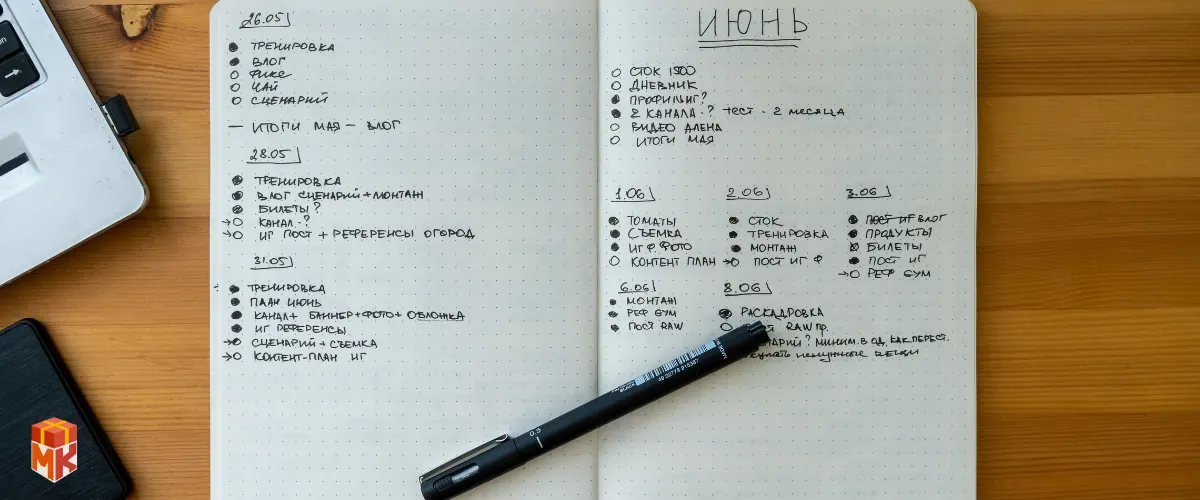 26.05
● ТРЕНИРОВКА
● ВЛОГ
○ ФИКС
○ ЧАЙ
○ СЦЕНАРИЙ
— ИТОГИ МАЯ – ВЛОГ
28.05
● ТРЕНИРОВКА
● ВЛОГ СЦЕНАРИЙ+МОНТАЖ
● БИЛЕТЫ?
→○ КАНАЛ -?
→○ ИГ ПОСТ + РЕФЕРЕНСЫ ОГОРОД
31.05
● ТРЕНИРОВКА
● ПЛАН ИЮНЬ
● КАНАЛ+ БАННЕР+ФОТО+ ОБЛОЖКА
● ИГ РЕФЕРЕНСЫ
→○ СЦЕНАРИЙ + СЪЕМКА
→○ КОНТЕНТ-ПЛАН ИГ
ИЮНЬ
○ СТОК 1500
○ ДНЕВНИК
● ПРОФИЛЬ ИГ?
● 2 КАНАЛА -? тест - 2 месяца
○ ВИДЕО АЛЕНА
○ ИТОГИ МАЯ
1.06
● ТОМАТЫ
● СЪЕМКА
● ИГ Ф. ФОТО
○ КОНТЕНТ ПЛАН
2.06
● СТОК
● ТРЕНИРОВКА
● МОНТАЖ
→○ ПОСТ ИГ Ф
3.06
● ПОСТ ИГ ВЛОГ
● ПРОДУКТЫ
⊗ БИЛЕТЫ
● ПОСТ ИГ
→○ РЕФ GYM
6.06
● МОНТАЖ
● РЕФ GYM
● ПОСТ RAW
8.06
● РАСКАДРОВКА
RAW пр.
НАРИЙ? МИНИМ. В ОД. КАК ПЕРЕСТ.
ненужные вещи
0.5
MK